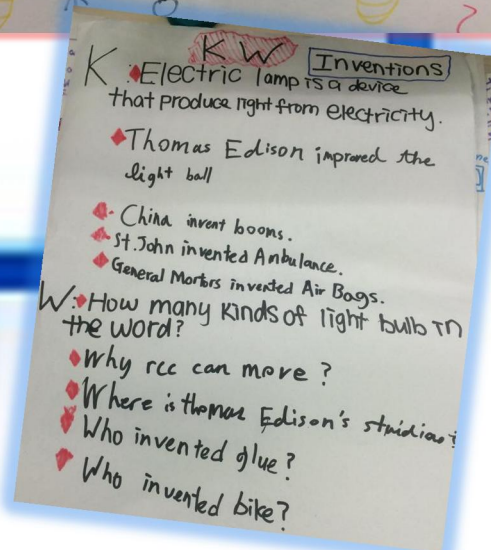 K W
Inventions
K : Electric lamp is a device
that produce light from electricity.
Thomas Edison improved the
light ball
China invent booms.
St. John invented Ambulance.
General Mortors invented Air Bags.
W: How many kinds of light bulb in
the word?
Why rcc can move ?
Where is thomas Edison's
Who invented glue?
Who invented bike?